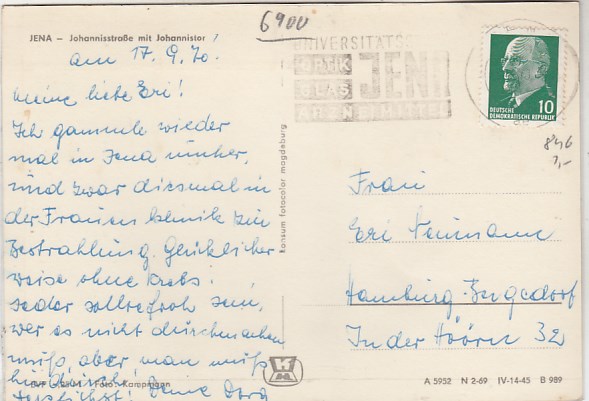 6900
JENA – Johannisstraße mit Johannistor
am 17.9.70!
Meine liebe Eri!
Ich gammle wieder
mal in Jena umher,
und zwar diesmal in
der Frauenklinik zur
Bestrahlung. Glücklicher
weise ohne Krebs!
Jeder sollte froh sein,
wer es nicht durchmachen
muß, aber man muß
hindurch!
Deine Dorq
BVF
Foto: Kampmann
konsum fotocolor magdeburg
UNIVERSITÄTS
OPTIK
GLAS
JENA
ARZNEIMITTEL
DEUTSCHE
DEMOKRATISCHE REPUBLIK
10
846
1,-
Frau
Eri Neumann
Hamburg-Bergedorf
In der Hörn 32
A 5952 N 2-69 IV-14-45 B 989